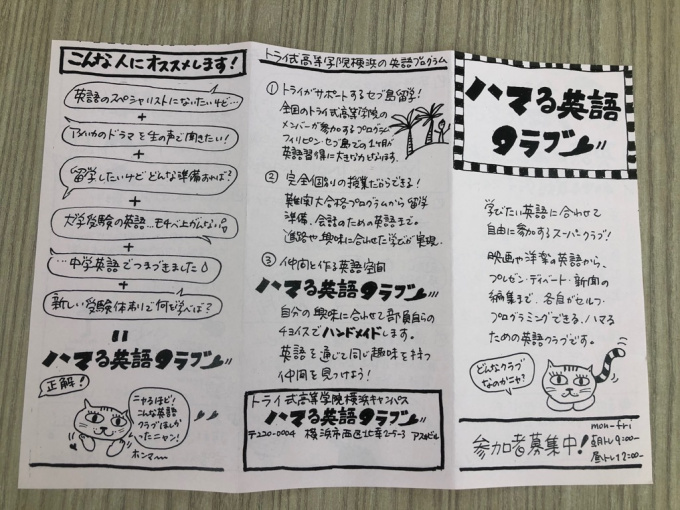 こんな人にオススメします!
英語のスペシャリストになりたいけど…
+
アメリカのドラマを生の声で聞きたい!
+
留学したいけどどんな準備あれば?
+
大学受験の英語…モチベ上がんない
+
…中学英語でつまづきました
+
新しい受験体制りで何を学べば?
=
ハマる英語クラブ
正解!
ニャるほど!
こんな英語
クラブほしか
ったニャン!
ホンマ〜
トライ式高等学院横浜の英語プログラム
① トライがサポートするセブ島留学!
全国のトライ式高等学院の
メンバーが参加するプログラム
フィリピン・セブ島での1ヶ月が
英語習得に大きな力となります.
② 完全個別の授業だからできる!
難関大合格プログラムから留学
準備、会話のための英語まで。
進路や興味に合わせた学びが実現.
③ 仲間と作る英語空間
ハマる英語クラブ
自分の興味に合わせて部員自らの
チョイスでハンドメイドします。
英語を通じて同じ趣味を持つ
仲間を見つけよう!
トライ式高等学院横浜キャンパス
ハマる英語クラブ
〒220-0004 横浜市西区北幸2-5-3 アスカビル
ハマる英語
クラブ
学びたい英語に合わせて
自由に参加するスーパークラブ!
映画や洋楽の英語から、
プレゼン・ディベート・新聞の
編集まで、各自がセルフ・
プログラミングできる、ハマる
ための英語クラブです。
どんなクラブ
なのかニャ?
参加者募集中!
mon-fri
朝トレ9:00-
昼トレ12:00-